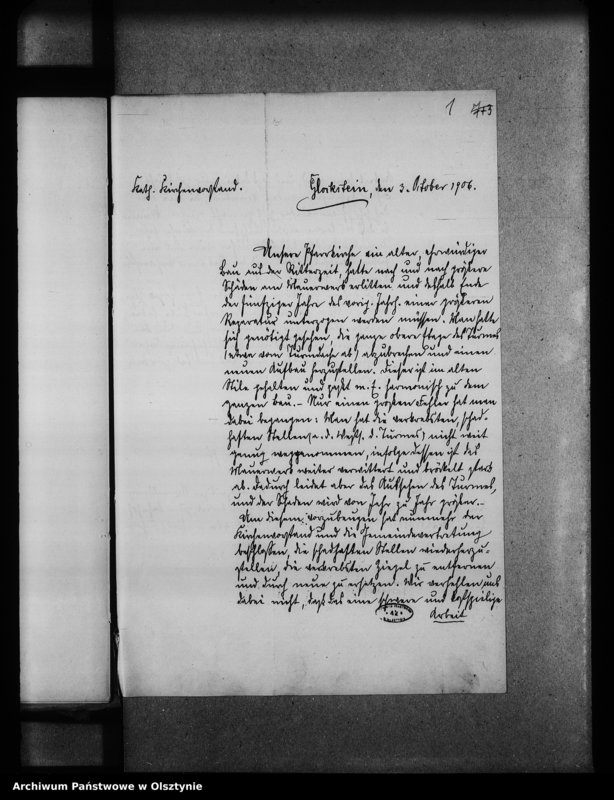 1
Kath. Kirchenvorstand.
Glockstein, den 3. Oktober 1906.
Unsere Pfarrkirche ein alter, ehrwürdiger
Bau aus der Ritterzeit, hatte nach und nach größere
Schäden am Mauerwerk erlitten und deshalb Ende
der fünfziger Jahre des vorig. Jahrh. einer größeren
Reparatur unterzogen werden müssen. Man hatte
sich genötigt gesehen, die ganze obere Etage des Turmes
(etwa vom Turmdache ab) abzubrechen und einen
neuen Aufbau herzustellen. Dieser ist im alten
Stile gehalten und paßt m. E. harmonisch zu dem
ganzen Bau. – Nur einen großen Fehler hat man
dabei begangen: Man hat die verkrebsten, schad-
haften Stellen (a. d. Wests. d. Turmes) nicht weit
genug weggenommen, infolge dessen ist das
Mauerwerk weiter verwittert und bröckelt stark
ab. Dadurch leidet aber das Aussehen des Turmes,
und der Schaden wird von Jahr zu Jahr größer. –
Um diesem vorzubeugen hat nunmehr der
Kirchenvorstand und die Gemeindevertretung
beschlossen, die schadhaften Stellen wiederherzu-
stellen, die verkrebsten Ziegel zu entfernen
und durch neue zu ersetzen. Wir verhehlen uns
dabei nicht, daß das eine schwere und kostspielige
Arbeit
Archiwum Państwowe w Olsztynie